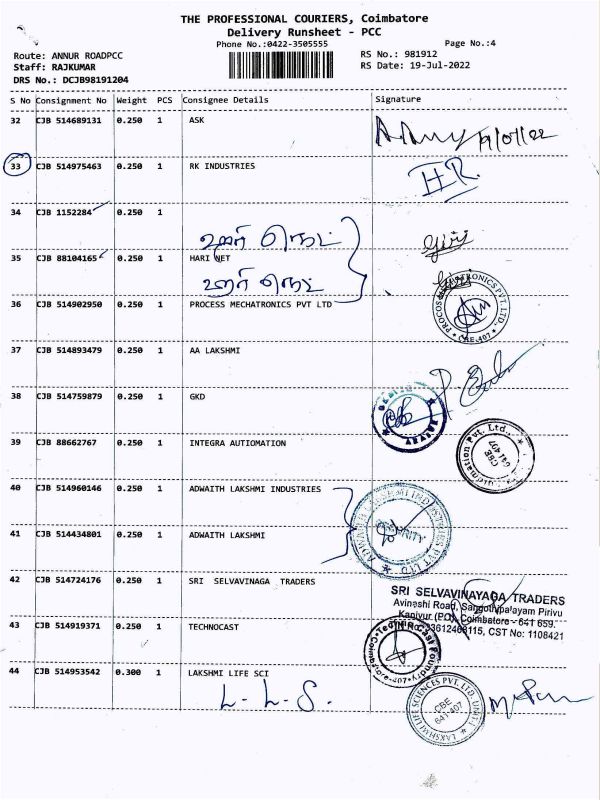 THE PROFESSIONAL COURIERS, Coimbatore
Delivery Runsheet - PCC
Phone No.:0422-3505555
Page No.:4
Route: ANNUR ROADPCC
RS No.: 981912
Staff: RAJKUMAR
RS Date: 19-Jul-2022
DRS No.: DCJB98191204
S No Consignment No Weight PCS Consignee Details Signature
32 CJB 514689131 0.250 1 ASK
19/07/22
33 CJB 514975463 0.250 1 RK INDUSTRIES
34 CJB 1152284 0.250 1
ஹரி நெட்
35 CJB 88104165 0.250 1 HARI NET
ஹரி நெட்
36 CJB 514902950 0.250 1 PROCESS MECHATRONICS PVT LTD
CBE-407
37 CJB 514893479 0.250 1 AA LAKSHMI
38 CJB 514759879 0.250 1 GKD
39 CJB 88662767 0.250 1 INTEGRA AUTIOMATION
CBE
641 407
40 CJB 514960146 0.250 1 ADWAITH LAKSHMI INDUSTRIES
ADWAITH LAKSHMI INDUSTRIES PVT LTD
41 CJB 514434801 0.250 1 ADWAITH LAKSHMI
42 CJB 514724176 0.250 1 SRI SELVAVINAGA TRADERS
SRI SELVAVINAYAGA TRADERS
Avinashi Road, Sangothipalayam Pirivu
Kaniyur (PO), Coimbatore - 641 659.
CST No: 1108421
43 CJB 514919371 0.250 1 TECHNOCAST
44 CJB 514953542 0.300 1 LAKSHMI LIFE SCI
L. L. S.
LAKSHMI LIFE SCIENCES PVT. LTD. UNIT-I
CBE
641-407